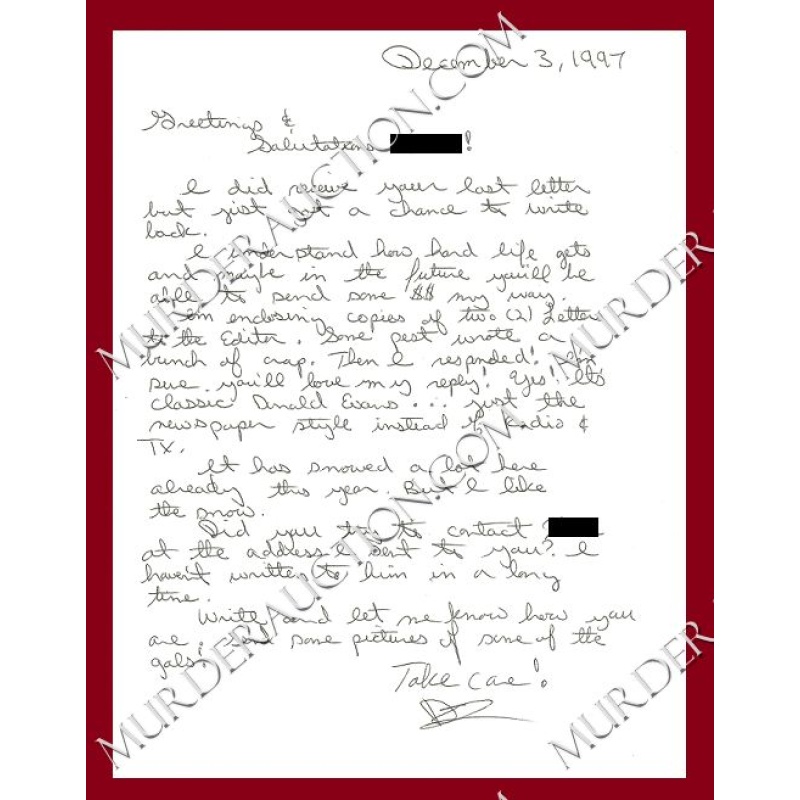 December 3, 1997
Greetings &
Salutations !
I did receive your last letter
but just got a chance to write
back.
I understand how hard life gets
and maybe in the future you'll be
able to send some $$ my way.
I'm enclosing copies of two (2) Letter
to the Editor. Some pest wrote a
bunch of crap. Then I responded! I'm
sure you'll love my reply! Yes! It's
classic Donald Evans... just the
newspaper style instead of Radio &
TX.
It has snowed a lot here
already this year. But I like
the snow.
Did you try to contact
at the address I sent to you? I
haven't written to him in a long
time.
Write and let me know how you
are. some pictures of some of the
gals!
Take care!
MURDERAUCTION.COM
MURDERAUCTION.COM
MURDER
MURDER